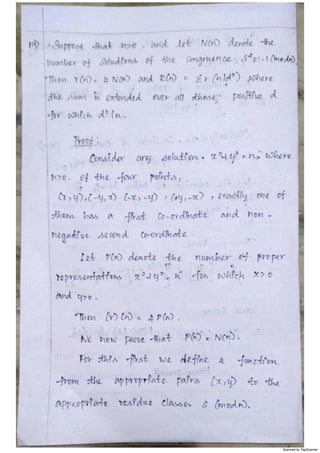 Suppose that n>0, and let N(n) denote the
number of solutions of the congruence S²≡-1 (mod n).
Then r(n) = 4 N(n) and R(n) = Σr (n/d²) where
the sum is extended over all those positive d
for which d²|n.
Proof:
Consider any solution x²+y² = n, where
n>0. Of the four points,
(x,y), (-y,x) (-x,-y), (y,-x), exactly one of
them has a first co-ordinate and non-
negative second co-ordinate.
Let P(n) denote the number of proper
representations x²+y² = n for which x>0
and y≥0.
Then (r)(n) = 4P(n).
We now prove that P(n) = N(n).
For this first we define a function
from the appropriate pairs (x,y) to the
appropriate residue classes S (mod n).
Scanned by TapScanner